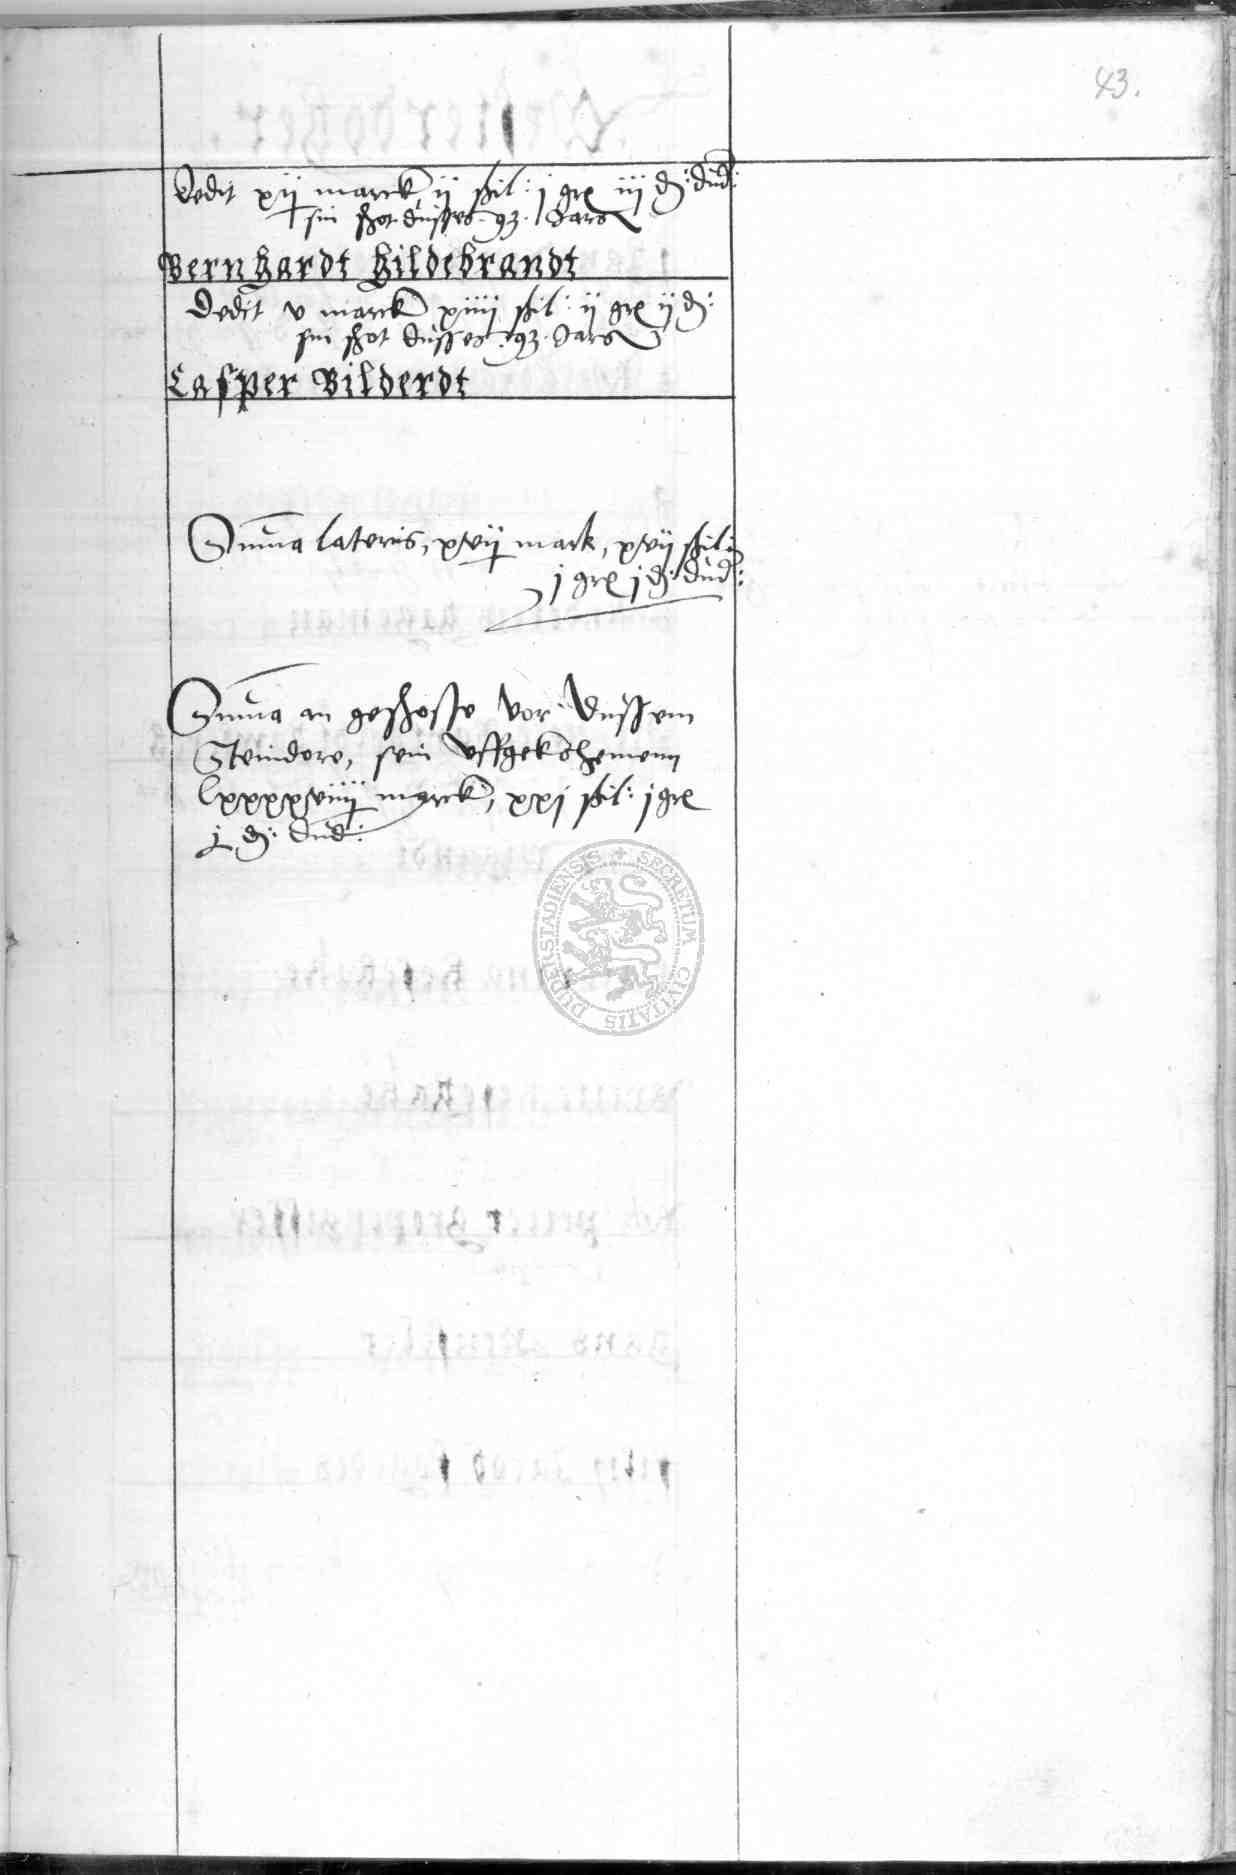 43.
Dedit xij marck ij ßil: j gre iij d: dud:
sin shot dusses. 93. Jars
Bernhardt Hildebrandt
Dedit v marck xiiij ßil: ij gre ij d:
sin shot dusses. 93. Jars
Casper Bilderdt
Suma lateris, xvij mark, xvij ßil:
j gre j d: dud:
Suma an geshosse vor dussem
Steindore, sein uffgekohemenn
lxxxxviiij marck, xxj ßil: j gre
j d: dud:
SECRETUM CIVITATIS DUDERSTADIENSIS